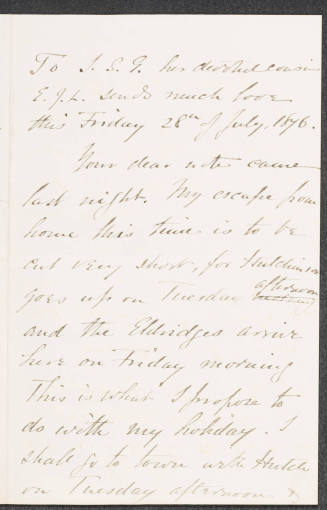 To S. E. G. her devoted cousin
E. J. L. sends much love
this Friday 28th of July, 1876.
Your dear note came
last night. My escape from
home this time is to be
cut very short, for Hutchinson
goes up on Tuesday afternoon
and the Eldridges arrive
here on Friday morning
This is what I propose to
do with my holiday. I
shall go to town with Hutch
on Tuesday afternoon &